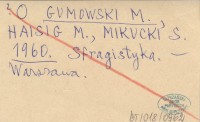 O GUMOWSKI M.,
HAISIG M., MIKUCKI S.
1960. Sfragistyka. —
Warszawa.